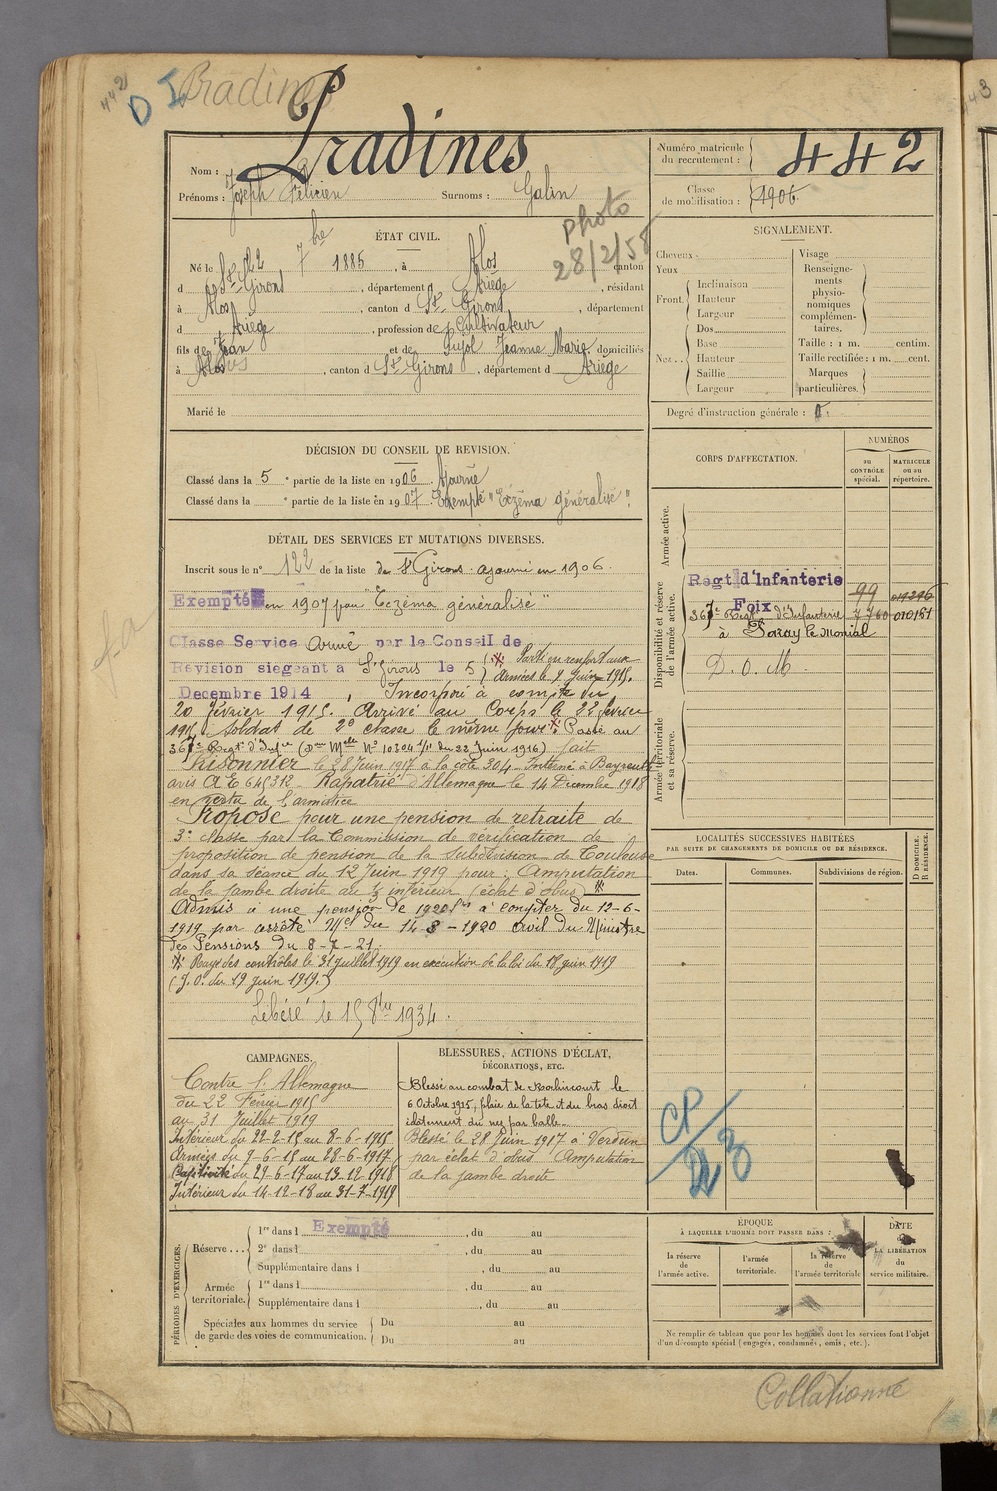 442
D I Pradines
Nom : Pradines
Prénoms : Joseph Félicien Surnoms : Galin
Numéro matricule du recrutement : 442
Classe de mobilisation : 1906
photo
28/2/58
ÉTAT CIVIL.
Né le 22 7bre 1885, à Alos canton
d St Girons, département d Ariège, résidant
à Alos, canton d St Girons, département
d Ariège, profession de Cultivateur
fils de Jean et de Pujol Jeanne Marie, domiciliés
à Alos, canton d St Girons, département d Ariège
Marié le
SIGNALEMENT.
Cheveux
Yeux
Front.
Inclinaison
Hauteur
Largeur
Nez..
Dos
Base
Hauteur
Saillie
Largeur
Visage
Renseigne-
ments
physio-
nomiques
complémen-
taires.
Taille : 1 m. centim.
Taille rectifiée : 1 m. cent.
Marques
particulières.
Degré d'instruction générale :
DÉCISION DU CONSEIL DE REVISION.
Classé dans la 5 e partie de la liste en 1906 Ajourné
Classé dans la e partie de la liste en 1907 Exempté "Eczéma généralisé".
DÉTAIL DES SERVICES ET MUTATIONS DIVERSES.
Inscrit sous le n° 122 de la liste de St Girons. ajourné en 1906.
Exempté en 1907 pour "Eczéma généralisé"
Classe Service Armé par le Conseil de
Révision siégeant à St Girons le 5
Parti en renfort aux
armées le 9 Juin 1915.
Decembre 1914, Incorporé à compter du
20 février 1915. Arrivé au Corps le 22 février
1915. Soldat de 2e classe le même jour. Passé au
367e Regt d'Infie (Don Melle No 10304 1/11 du 23 Juin 1916) fait
Prisonnier le 28 Juin 1917 à la côte 304. Interné à Bayreuth
avis A E 645312. Rapatrié d'Allemagne le 14 Décembre 1918
en vertu de l'armistice
Proposé pour une pension de retraite de
3e classe par la Commission de vérification de
proposition de pension de la subdivision de Toulouse
dans sa séance du 12 Juin 1919 pour : Amputation
de la jambe droite au ⅓ inférieur (éclat d'obus)
Admis à une pension de 1920 frs à compter du 12-6-
1919 par arrêté Mel du 14 8 - 1920 avis du Ministre
des Pensions du 8-7-21.
Rayé des contrôles le 31 juillet 1919 en exécution de la loi du 18 juin 1919
(J.O. du 19 juin 1919.)
Libéré le 15 8bre 1934.
CORPS D'AFFECTATION.
NUMÉROS
au
CONTRÔLE
spécial.
MATRICULE
ou au
répertoire.
Armée active.
Disponibilité et réserve
de l'armée active.
Regt d'Infanterie
Foix
99
019296
367e Regt d'Infanterie 7760 010161
à Paray le Monial
D. O. M.
Armée territoriale
et sa réserve.
LOCALITÉS SUCCESSIVES HABITÉES
PAR SUITE DE CHANGEMENTS DE DOMICILE OU DE RÉSIDENCE.
Dates.
Communes.
Subdivisions de région.
D DOMICILE.
R RÉSIDENCE.
CAMPAGNES.
Contre l'Allemagne
du 22 Février 1915
au 31 Juillet 1919
Intérieur du 22-2-15 au 8-6-1915
Armées du 9-6-15 au 28-6-1917
Captivité du 29-6-17 au 13-12-1918
Intérieur du 14-12-18 au 31-7-1919
BLESSURES, ACTIONS D'ÉCLAT,
DÉCORATIONS, ETC.
Blessé au combat de Roclincourt le
6 Octobre 1915, plaie de la tête et du bras droit
du nez par balle.
Blessé le 28 Juin 1917 à Verdun
par éclat d'obus Amputation
de la jambe droite
CP
PÉRIODES D'EXERCICES.
Réserve...
1re dans l Exempté, du au
2e dans l, du au
Supplémentaire dans l, du au
Armée
territoriale.
1re dans l, du au
Supplémentaire dans l, du au
Spéciales aux hommes du service
de garde des voies de communication.
Du au
Du au
ÉPOQUE
À LAQUELLE L'HOMME DOIT PASSER DANS :
la réserve
de
l'armée active.
l'armée
territoriale.
la réserve
de
l'armée territoriale
DATE
de
LA LIBÉRATION
du
service militaire.
Ne remplir ce tableau que pour les hommes dont les services font l'objet
d'un décompte spécial (engagés, condamnés, omis, etc.).
Collationné